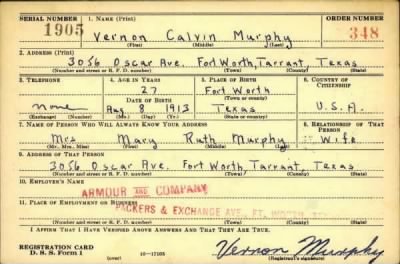 SERIAL NUMBER 1. NAME (Print) ORDER NUMBER
1905 Vernon Calvin Murphy 348
(First) (Middle) (Last)
2. ADDRESS (Print)
3056 Oscar Ave. Fort Worth, Tarrant, Texas
(Number and street or R. F. D. number) (Town) (County) (State)
3. TELEPHONE 4. AGE IN YEARS 5. PLACE OF BIRTH 6. COUNTRY OF CITIZENSHIP
27 Fort Worth
DATE OF BIRTH (Town or county)
none Aug 8 1913 Texas U.S.A.
(Exchange) (Number) (Mo.) (Day) (Yr.) (State or country)
7. NAME OF PERSON WHO WILL ALWAYS KNOW YOUR ADDRESS 8. RELATIONSHIP OF THAT PERSON
Mrs Mary Ruth Murphy Wife
(Mr., Mrs., Miss) (First) (Middle) (Last)
9. ADDRESS OF THAT PERSON
3056 Oscar Ave. Fort Worth, Tarrant, Texas
(Number and street or R. F. D. number) (Town) (County) (State)
10. EMPLOYER'S NAME
ARMOUR AND COMPANY
11. PLACE OF EMPLOYMENT OR BUSINESS
PACKERS & EXCHANGE AVE., FT. WORTH,
(Number and street or R. F. D. number) (Town) (County) (State)
I AFFIRM THAT I HAVE VERIFIED ABOVE ANSWERS AND THAT THEY ARE TRUE.
REGISTRATION CARD
D. S. S. Form 1 (over) 16—17105 Vernon Murphy
(Registrant's signature)